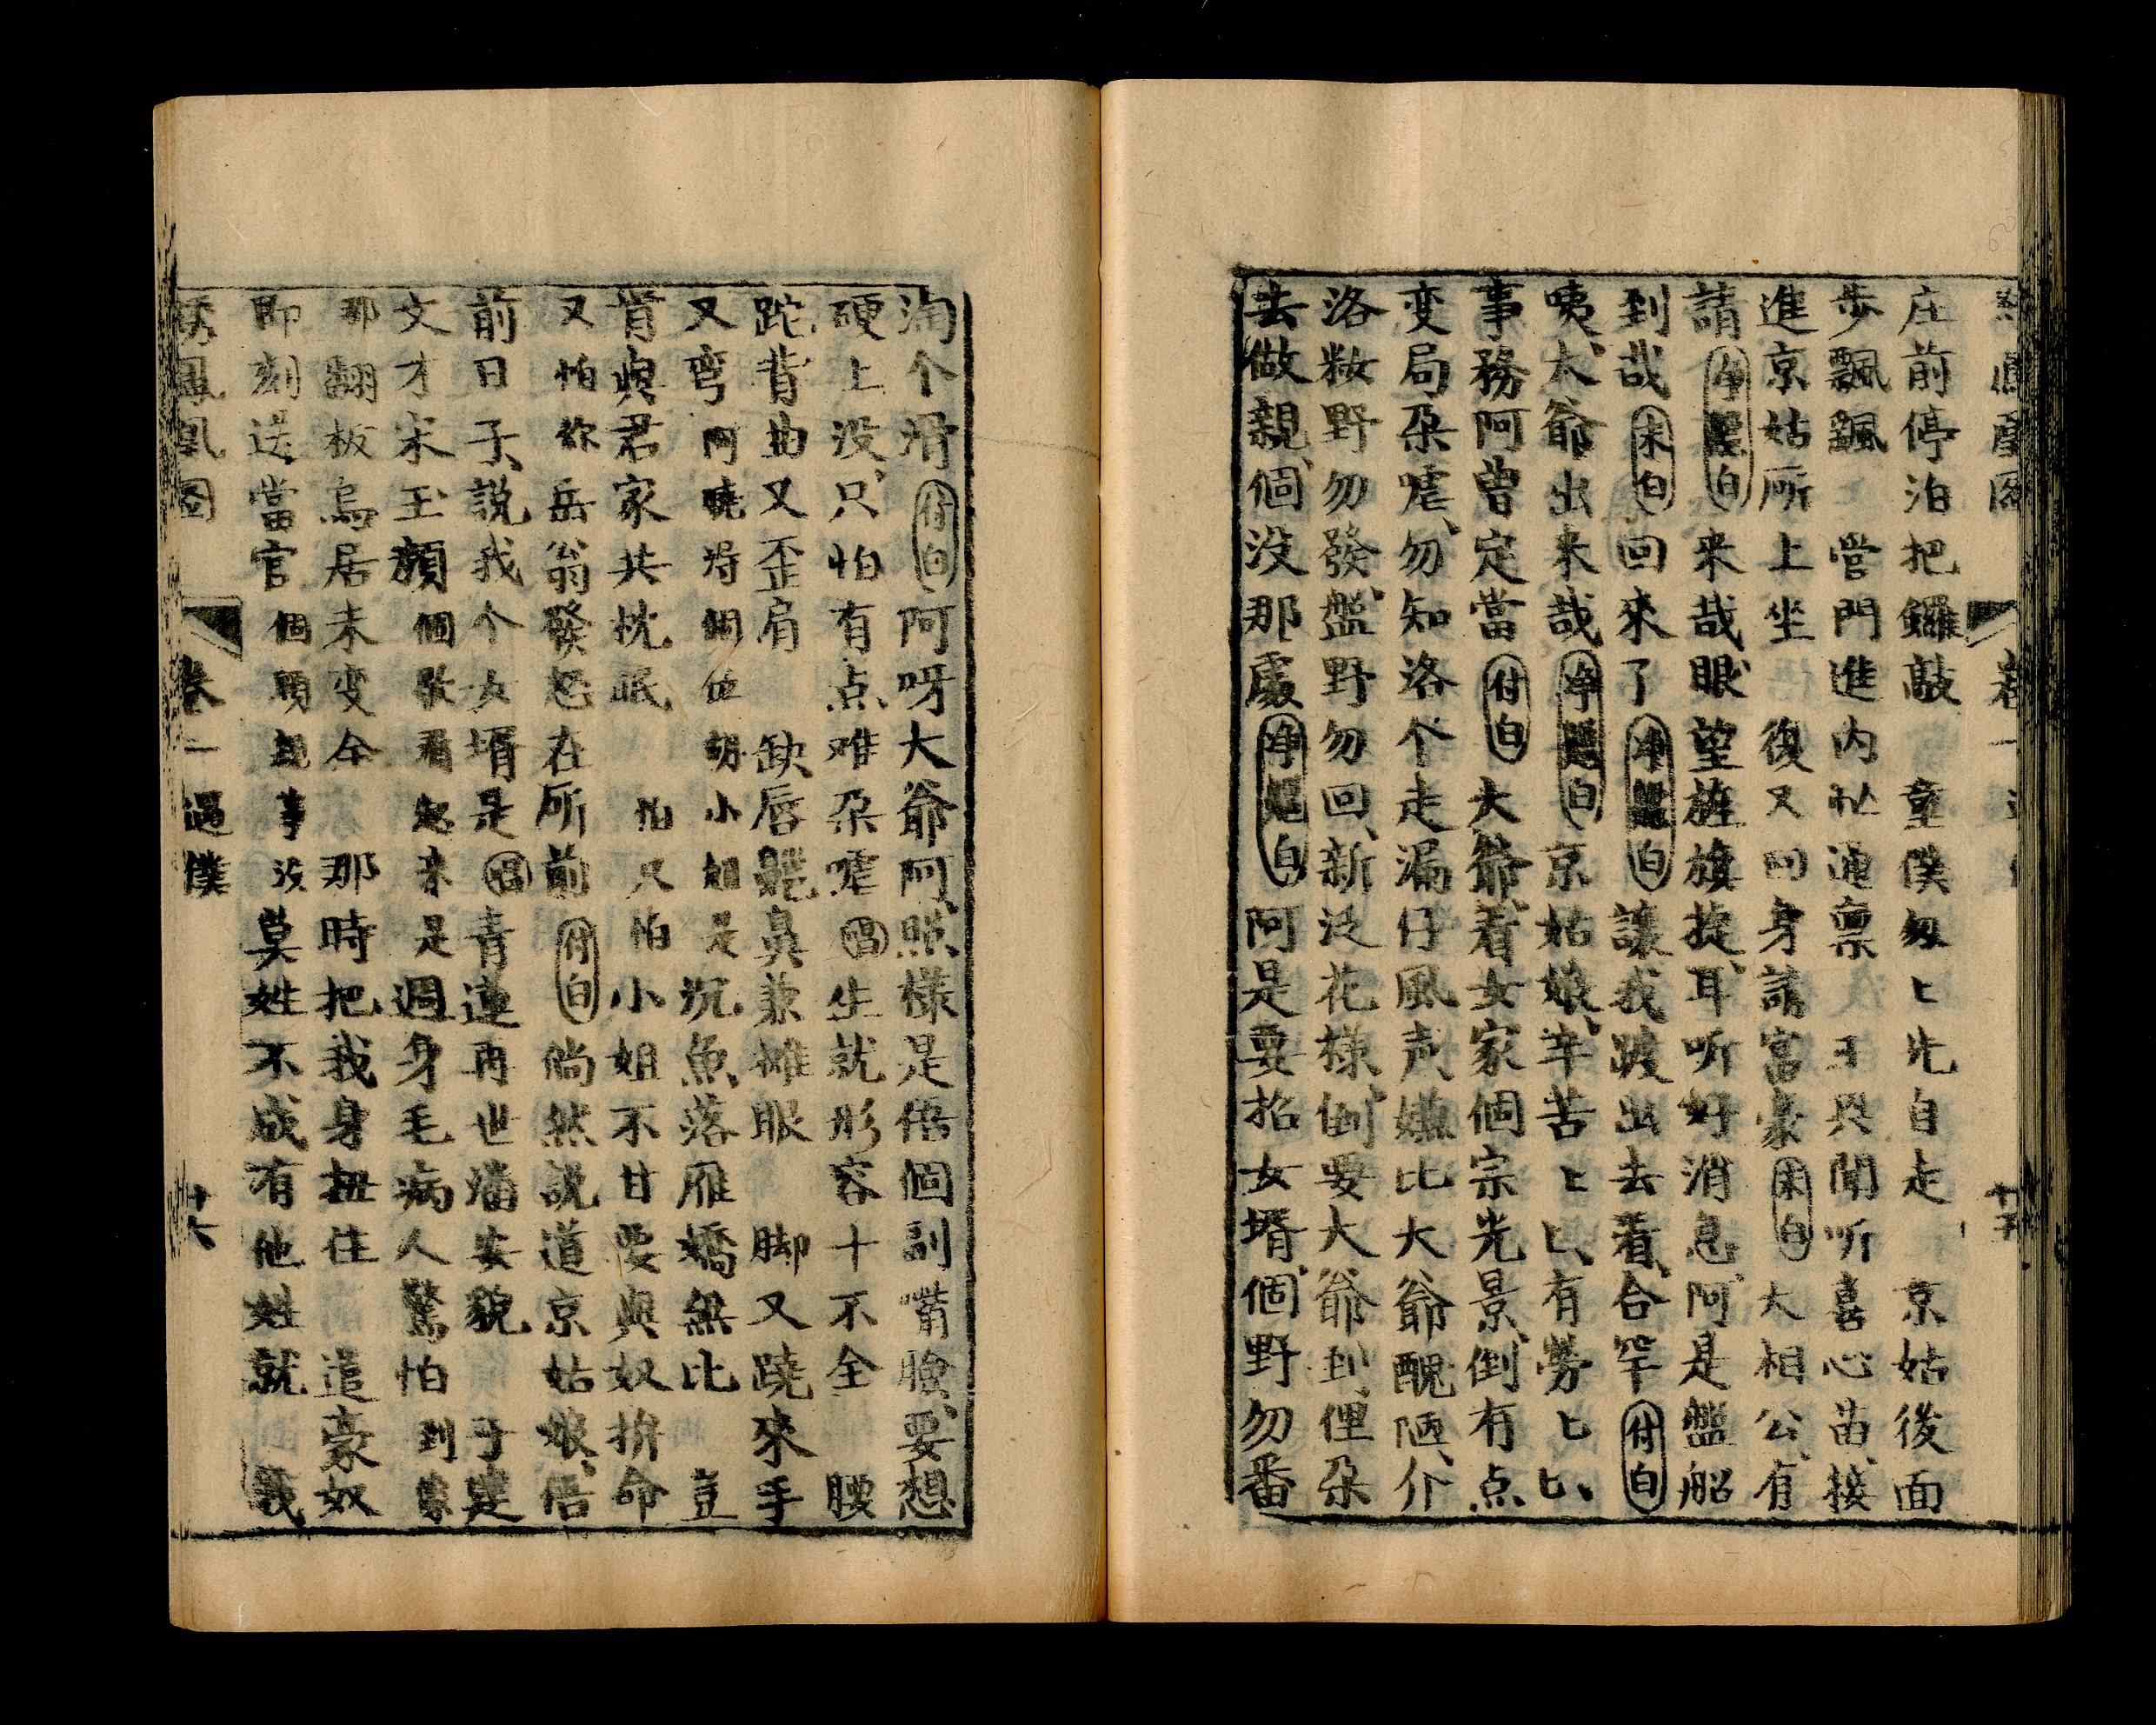 庄前停泊把鑼敲　童僕匆匕先自走　京姑後面
步飄飄　管門進內祉通禀　王興聞听喜心苗、接
進京姑所上坐　復又回身請富豪 末白 大相公、有
請 淨 白 來哉、眼望旌旗捷、耳听好消息、阿是盤船
到哉 末白 回來了 淨 白 讓我踱出去看、合罕 付白
咦、大爺出來哉 淨 白 京姑娘、辛苦匕匕、有勞匕匕、
事務阿曾定當 付白 大爺、看女家個宗光景、倒有点
变局朶嚡、勿知洛个走漏仔風声、嫌比大爺醜陋、介
洛妝野勿發、盤野勿回、新泛花樣、倒要大爺到俚朶
去做親、個沒那處 淨 白 阿是要招女壻、個野勿番
淘个壻 付白 阿呀大爺阿、照樣是倍個副嘴臉、要想
硬上没、只怕有点难朶嚡 唱 生就形容十不全　腰
跎背曲又歪肩　缺唇齆鼻兼摊眼　脚又蹺來手
又弯 阿曉得個位胡小姐是 沉魚落雁嬌無比　豈
肯與君家共枕眠 怕只怕 小姐不甘要與奴拚命
又怕你岳翁發怒在所前 付白 倘然説道京姑娘、倍
前日子、説我个女壻是 唱 青蓮再世潘安貌　于建
文才宋玉顏 個歇看起來是 週身毛病人驚怕 到像
那翻板烏居未变全　那時把我身扭住　追豪奴
即刻送當官 個頭親事没 莫姓不成有他姓就　我
綉鳳凰图　卷一　遇僕　廿六